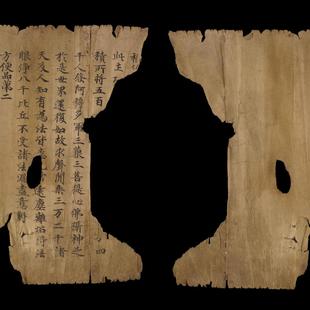 此土
積所將五百 四
千人發阿耨多羅三藐三菩提心佛攝神足
於是世界還復如故求聲聞乘三万二千諸
天及人知有為法皆悉無常遠塵離垢得法
眼淨八千比丘不受諸法漏盡意解
方便品第二